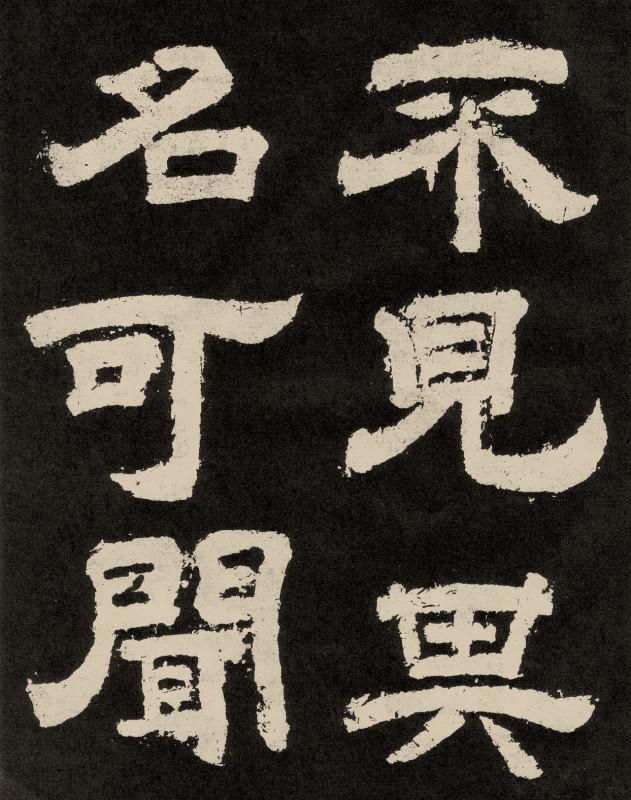 不見其
名可聞